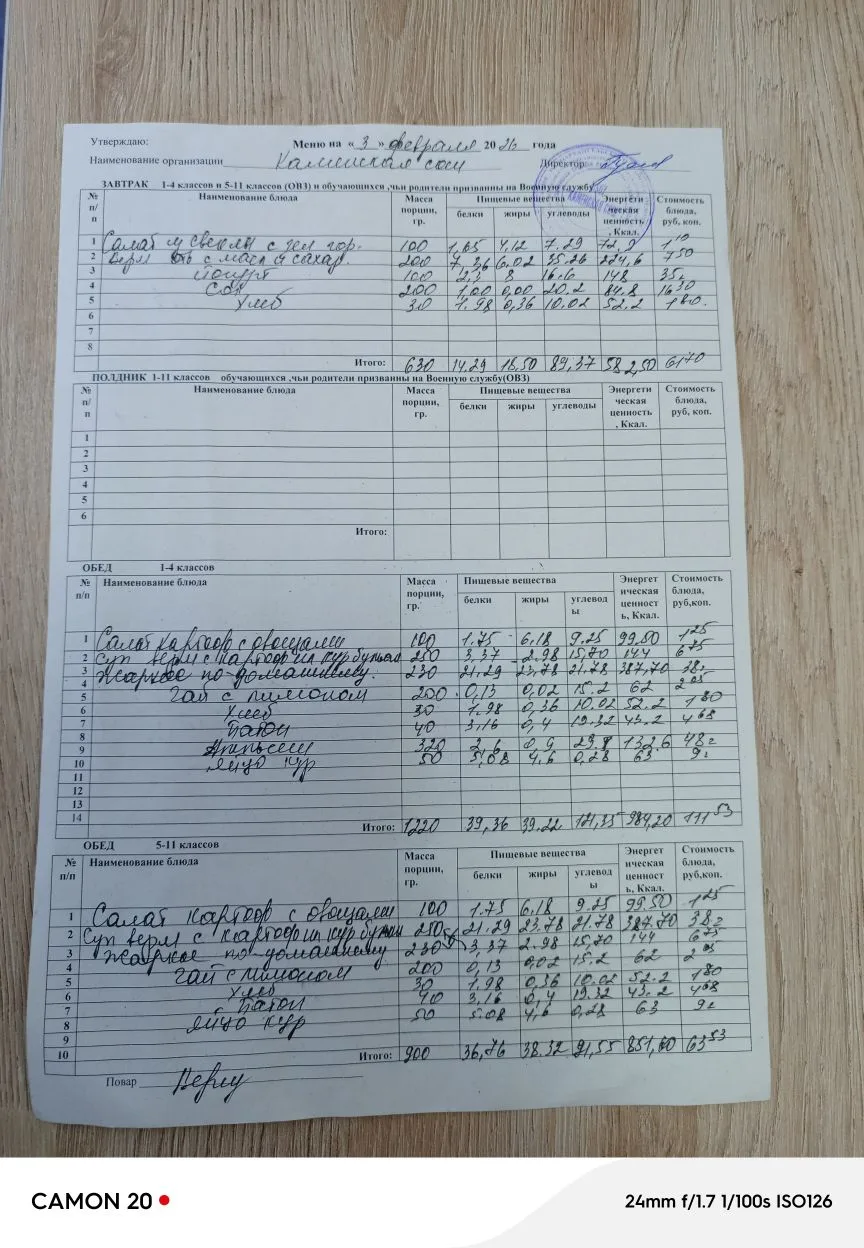 Утверждаю: Меню на « 3 » февраля 20 26 года
Наименование организации Каменская сош Директор:
ЗАВТРАК 1-4 классов и 5-11 классов (ОВЗ) и обучающихся ,чьи родители призванны на Военную службу
№ п/п Наименование блюда Масса порции, гр. Пищевые вещества белки жиры углеводы Энергетическая ценность , Ккал. Стоимость блюда, руб, коп.
1 Салат и свеклы с зел гор. 100 1,65 4,12 7.29 72,9 1 10
2 Верм отв с масл и сахар 200 7,36 6,02 35.26 224,6 7 50
3 йогурт 100 2,3 8 16.6 148 35,
4 Сок 200 1,00 0,00 20.2 84.8 16 30
5 Хлеб 30 1.98 0,36 10.02 52.2 1 80
6
7
8
Итого: 630 14.29 18,50 89,37 582,50 61 70
ПОЛДНИК 1-11 классов обучающихся ,чьи родители призванны на Военную службу(ОВЗ)
№ п/п Наименование блюда Масса порции, гр. Пищевые вещества белки жиры углеводы Энергетическая ценность , Ккал. Стоимость блюда, руб, коп.
1
2
3
4
5
6
Итого:
ОБЕД 1-4 классов
№ п/п Наименование блюда Масса порции, гр. Пищевые вещества белки жиры углеводы Энергетическая ценность, Ккал. Стоимость блюда, руб,коп.
1 Салат картоф с овощами 100 1.75 6,18 9.25 99.50 1 25
2 Суп верм с картоф на кур бульон 250 3,37 2.98 15,70 144 6 75
3 Жаркое по-домашнему. 230 21.29 23,78 21.78 387,70 38,
4 Чай с лимоном 200 0,13 0,02 15.2 62 2 05
5
6 Хлеб 30 1.98 0,36 10.02 52.2 1 80
7 Батон 40 3,16 0,4 19.32 43.2 4 68
8
9 Апельсин 320 2,6 0,9 29.8 132.6 48
10 Яйцо кур 50 5,08 4,6 0,28 63 9
11
12
13
14 Итого: 1220 39,36 39.22 121,35 984,20 111 53
ОБЕД 5-11 классов
№ п/п Наименование блюда Масса порции, гр. Пищевые вещества белки жиры углеводы Энергетическая ценность, Ккал. Стоимость блюда, руб,коп.
1 Салат картоф с овощами 100 1.75 6,18 9.25 99.50 1 25
2 Суп верм с картоф на кур бульон 250 21.29 23.78 21.78 387.70 38
3 Жаркое по-домашнему 230 3,37 2.98 15,70 144 6 75
4 Чай с лимоном 200 0,13 0,02 15.2 62 2 05
5 Хлеб 30 1,98 0,36 10.02 52.2 1 80
6 Батон 40 3,16 0,4 19.32 43.2 4 68
7 Яйцо кур 50 5.08 4,6 0,28 63 9
8
9
10 Итого: 900 36,76 38.32 91,55 851,60 63 53
Повар
CAMON 20 24mm f/1.7 1/100s ISO126